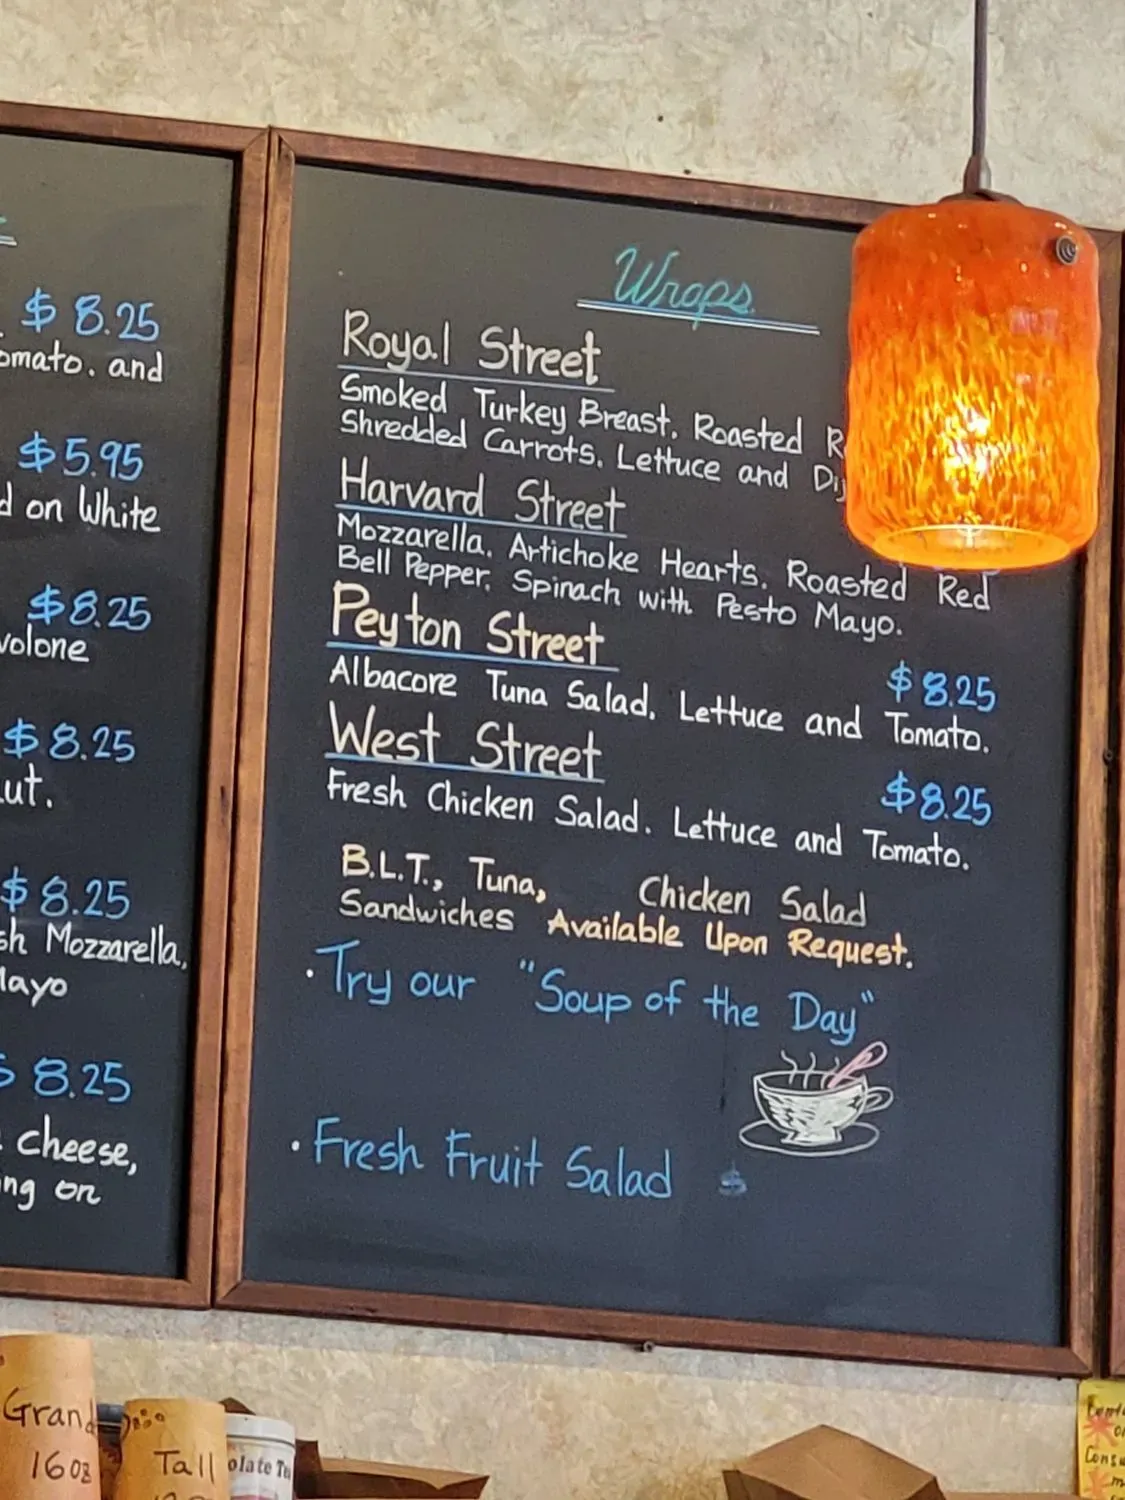 $ 8.25
omato. and
$5.95
d on White
$8.25
volone
$8.25
ut.
$8.25
sh Mozzarella,
Mayo
$ 8.25
Cheese,
ng on
Wraps.
Royal Street
Smoked Turkey Breast. Roasted R
Shredded Carrots. Lettuce and Dij
Harvard Street
Mozzarella. Artichoke Hearts. Roasted Red
Bell Pepper. Spinach with Pesto Mayo.
Peyton Street $8.25
Albacore Tuna Salad. Lettuce and Tomato.
West Street $8.25
Fresh Chicken Salad. Lettuce and Tomato.
B.L.T., Tuna, Chicken Salad
Sandwiches Available Upon Request.
· Try our "Soup of the Day"
· Fresh Fruit Salad $
Grand
16oz
Tall
olate
Consu